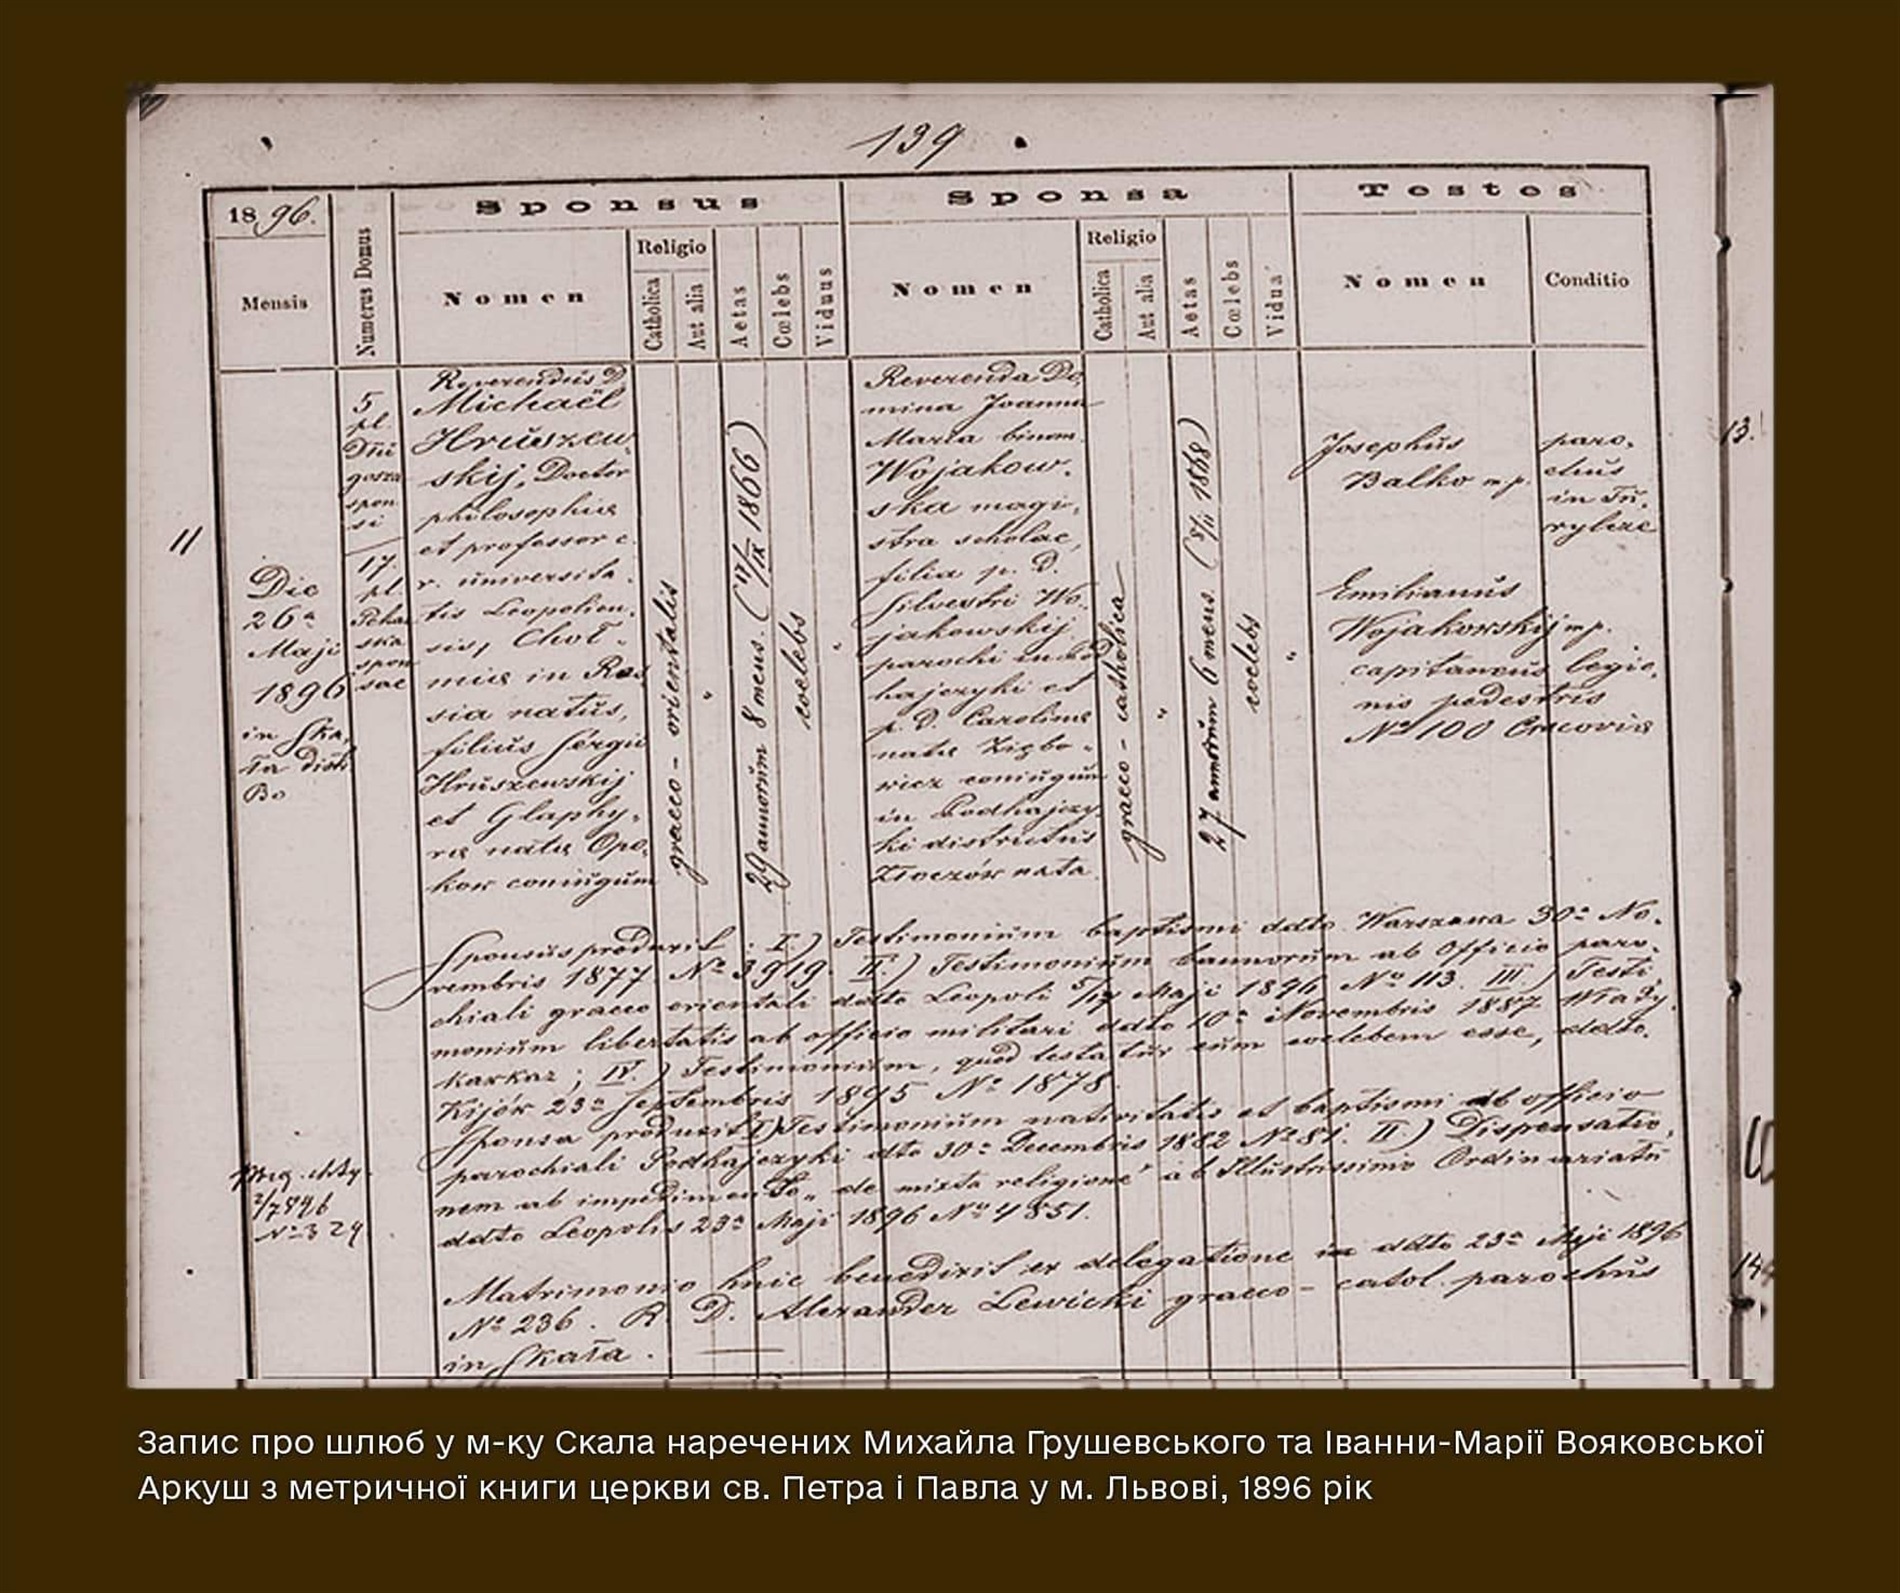 139
1896.
Sponsus
Sponsa
Testes
Mensis
Numerus Domus
Nomen
Religio
Catholica
Aut alia
Aetas
Cœlebs
Viduus
Nomen
Religio
Catholica
Aut alia
Aetas
Cœlebs
Vidua
Nomen
Conditio
11
Die
26ª
Maji
1896
in Ska,
ła
5
pl.
spon
si
17.
pl
ska
spon
sae
Reverendus D
Michaël
Hruszew
skij, Doctor
philosophiæ
et professor c.
r. universita
tis Leopolien.
sis, Chot
miæ in Ros
sia natus,
filius Sergii
Hruszewskij
et Glaphy,
ræ natæ Opo,
kow coniugum
graeco - orientalis
"
29 annorum 8 mens. (17/IX 1866)
coelebs
"
Reverenda Do
mina Joanna
Maria binom.
Wojakow.
ska magi,
stra scholae,
filia p. D.
Silvestri Wo,
jakowskij
parochi
hajczyki et
p. D. Carolinæ
natæ
wicz coniugum
in Podhajczy
ki districtus
Złoczów nata
graeco - catholica
"
27 annorum 6 mens.
coelebs
"
Josephus
Balko mp.
paro,
chus
in
Emilianus
Wojakowskij mp.
capitaneus legio,
nis pedestris
Nº 100 Cracoviæ
13.
Sponsus produxit: I.) Testimonium baptismi ddto Warszawa 30ª No,
vembris 1877 Nº 3919. II.) Testimonium bannorum ab Officio paro,
chiali graeco orientali ddto Leopoli 5/17 Maji 1896 Nº 113. III.) Testi,
monium libertatis ab officio militari ddto 10ª Novembris 1887 Wlady,
kawkaz; IV.) Testimonium, quod testatur eum coelebem esse, ddto.
Kijów 23ª Septembris 1895 Nº 1878.
Sponsa produxit I) Testimonium nativitatis et baptismi ab officio
parochiali Podhajczyki dto 30ª Decembris 1882 Nº 81. II.) Dispensatio,
nem ab impedimento „de mixta religione" ab Illustrissimo Ordinariatu
ddto Leopolis 23ª Maji 1896 Nº 4851.
2/7 896
Nº 329
Matrimonio huic benedixit ex delegatione in ddto 23ª Maji 1896
Nº 236. R. D. Alexander Lewicki graeco - catol. parochus
in Skała.
Запис про шлюб у м-ку Скала наречених Михайла Грушевського та Іванни-Марії Вояковської
Аркуш з метричної книги церкви св. Петра і Павла у м. Львові, 1896 рік